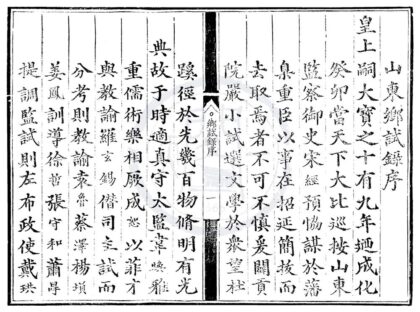 山東鄉試錄序
皇上嗣大寶之十有九年廼成化
癸卯當天下大比巡按山東
監察御史宋經預恊謀於藩
臬重臣以事在招延簡拔而
去取焉者不可不慎爰闢貢
院嚴小試選文學於衆望杜
鄉試錄序
一
蹊徑於先幾百物脩明有光
典故于時適真守太監韋煥雅
重儒術樂相厥成恕以菲才
與教諭羅玄錫僣司主試而
分考則教諭袁魯蔡澤楊塤
姜鳳訓導徐哲張守和蕭昂
提調監試則左布政使戴珙